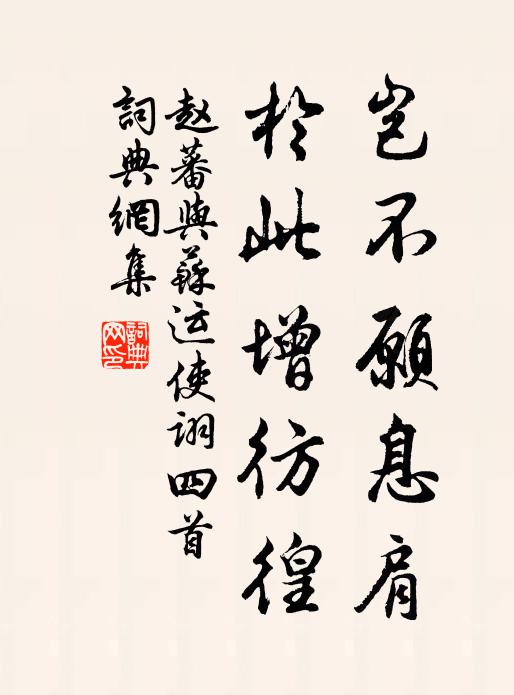 豈不願息肩
於此增彷徨
赵蕃與蘇运使詡四首
詞典網集
詞典網印